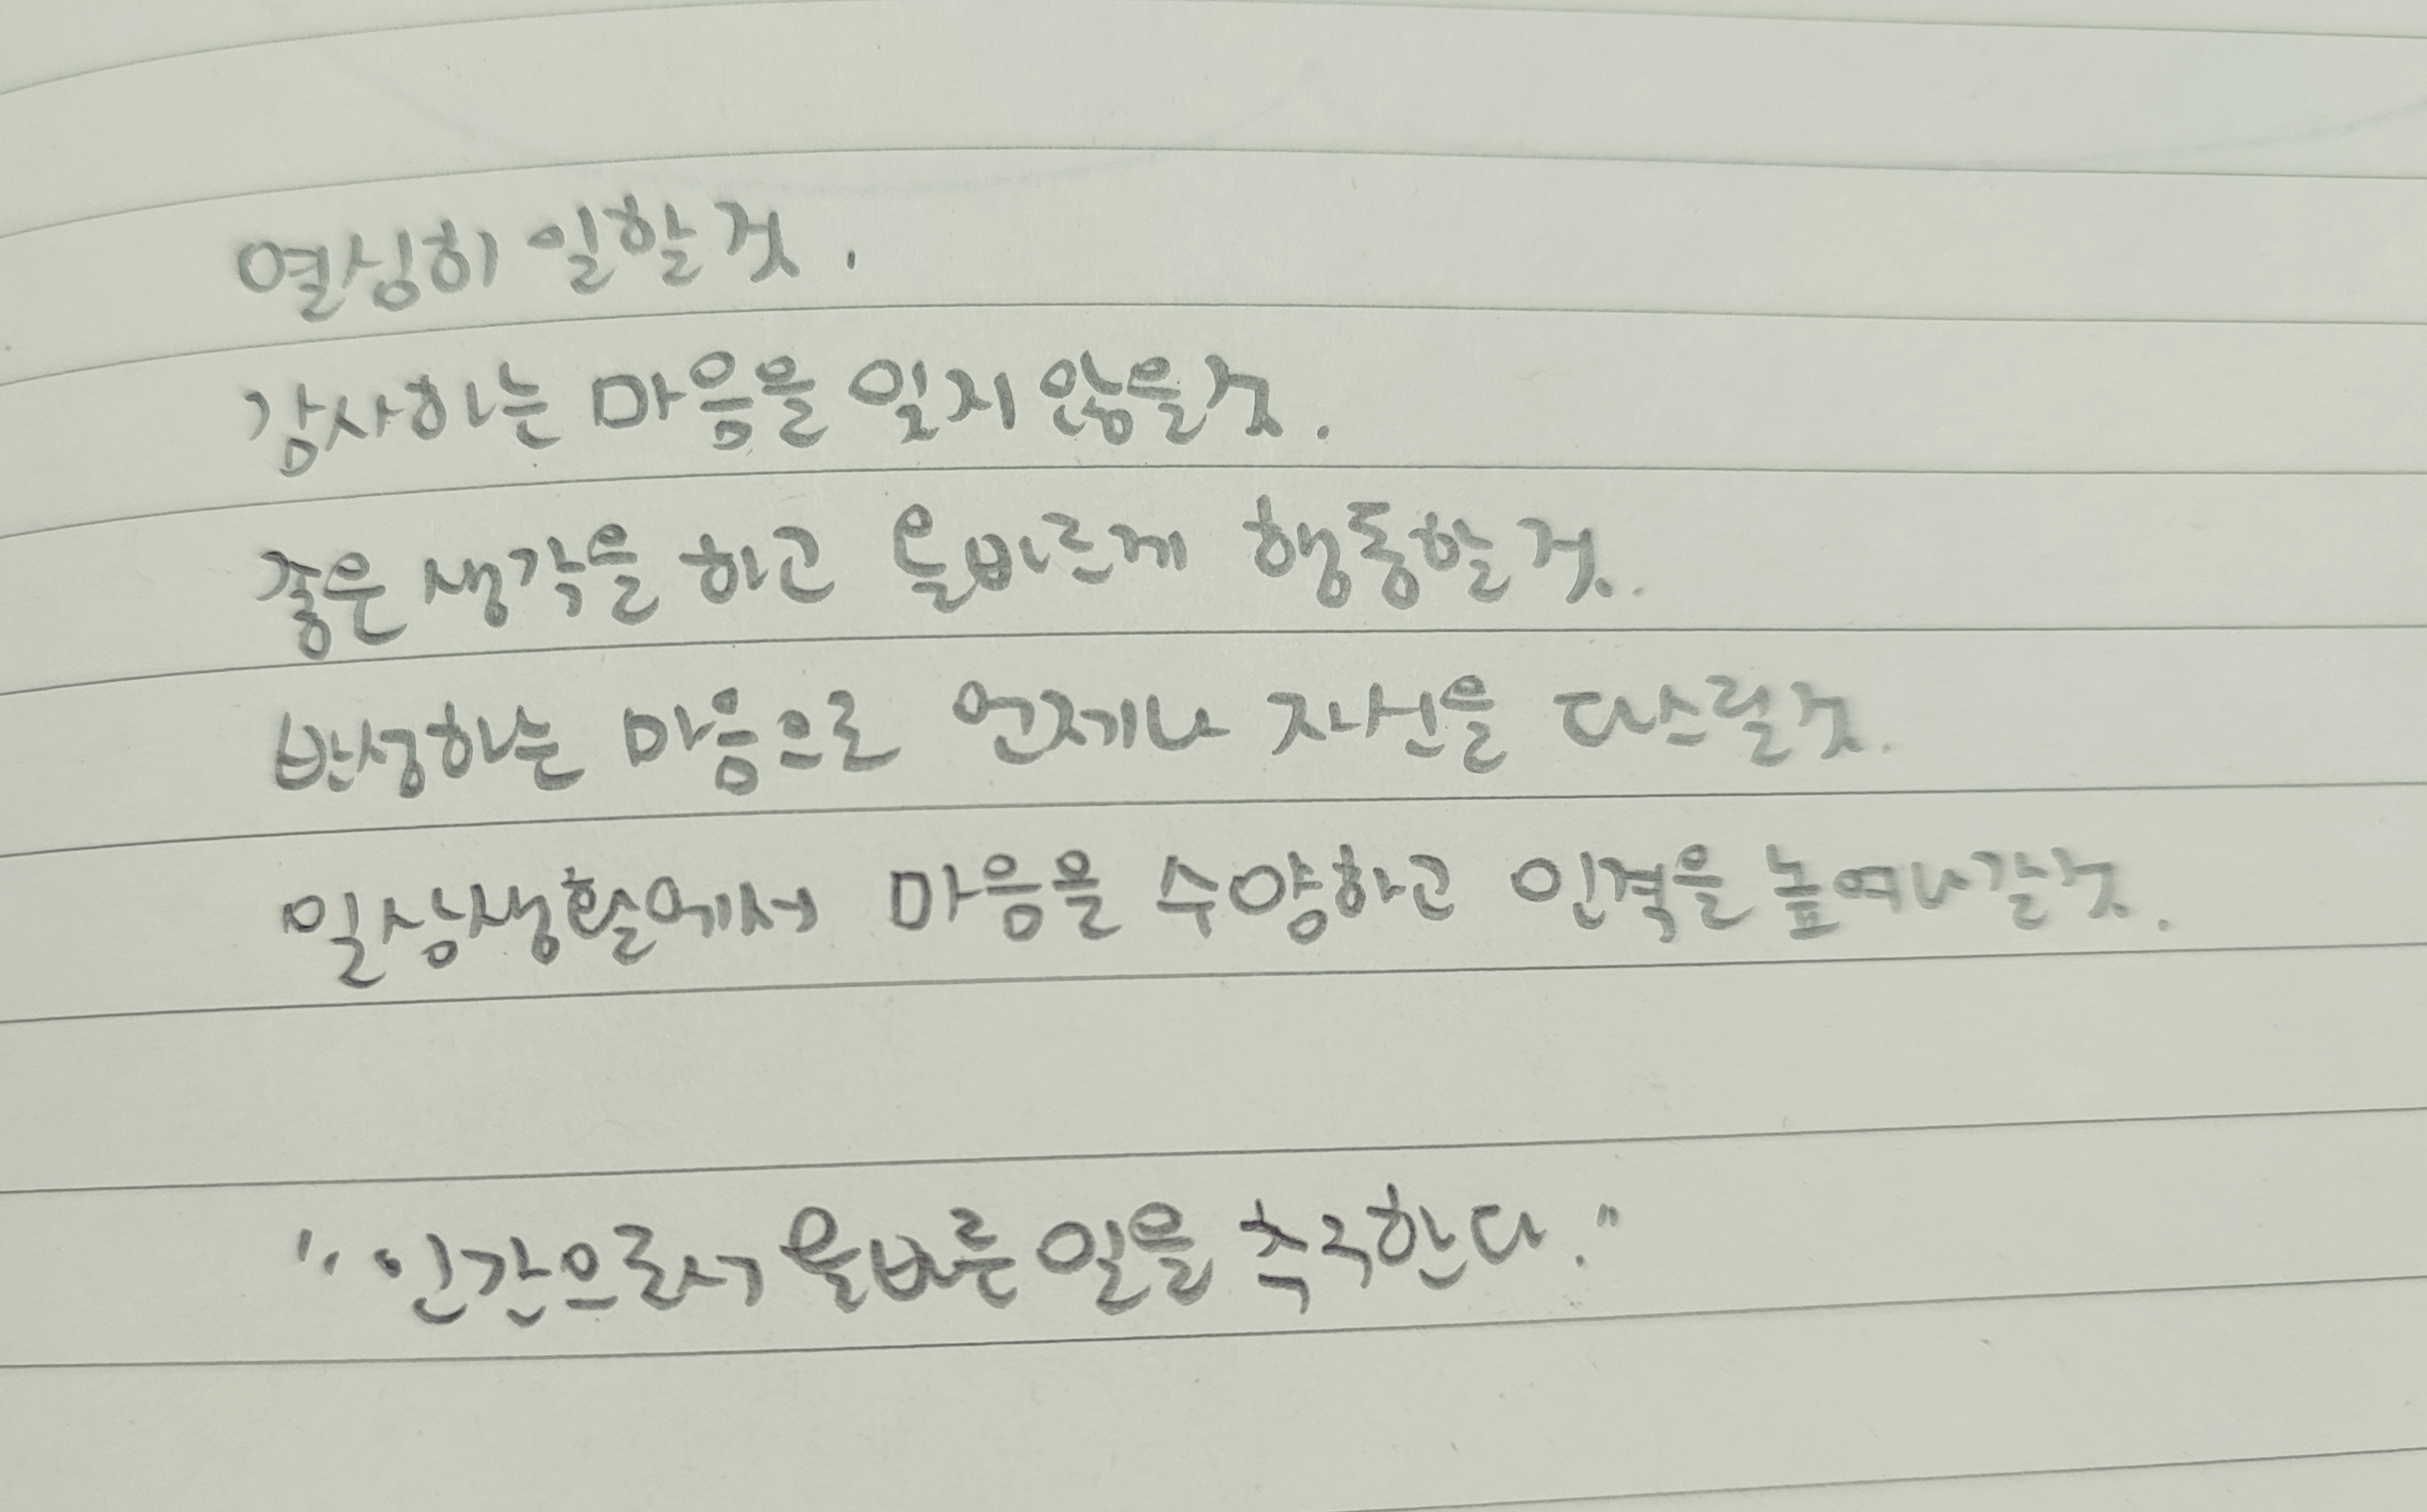 열심히 일할 것.
감사하는 마음을 잊지 않을 것.
좋은 생각을 하고 올바르게 행동할 것.
반성하는 마음으로 언제나 자신을 다스릴 것.
일상생활에서 마음을 수양하고 인격을 높여나갈 것.
"인간으로서 올바른 일을 추구한다."